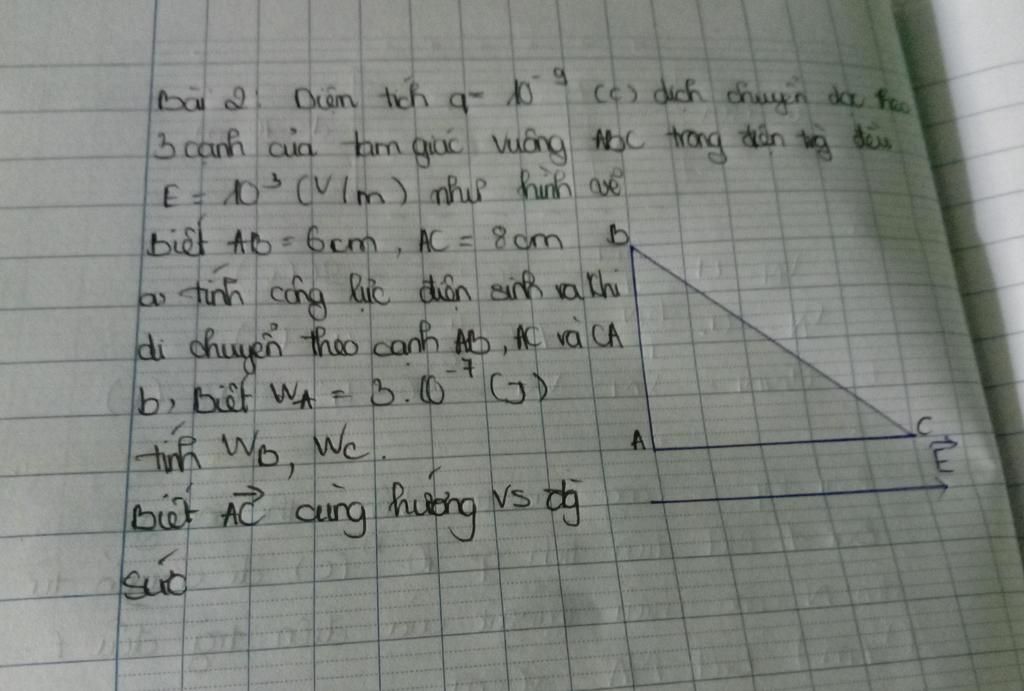 Bài 2: Điểm tích q = 10^-9 (C) dịch chuyển dọc theo
3 cạnh của tam giác vuông ABC trong điện trg đều
E = 10^3 (V/m) như hình vẽ
biết AB = 6cm, AC = 8cm
a, tính công lực điện sinh ra khi
di chuyển theo cạnh AB, AC và CA
b, biết W_A = 3.10^-7 (J)
tính W_B, W_C.
biết AC→ cùng hướng vs đg
sức
B
A
C
E→